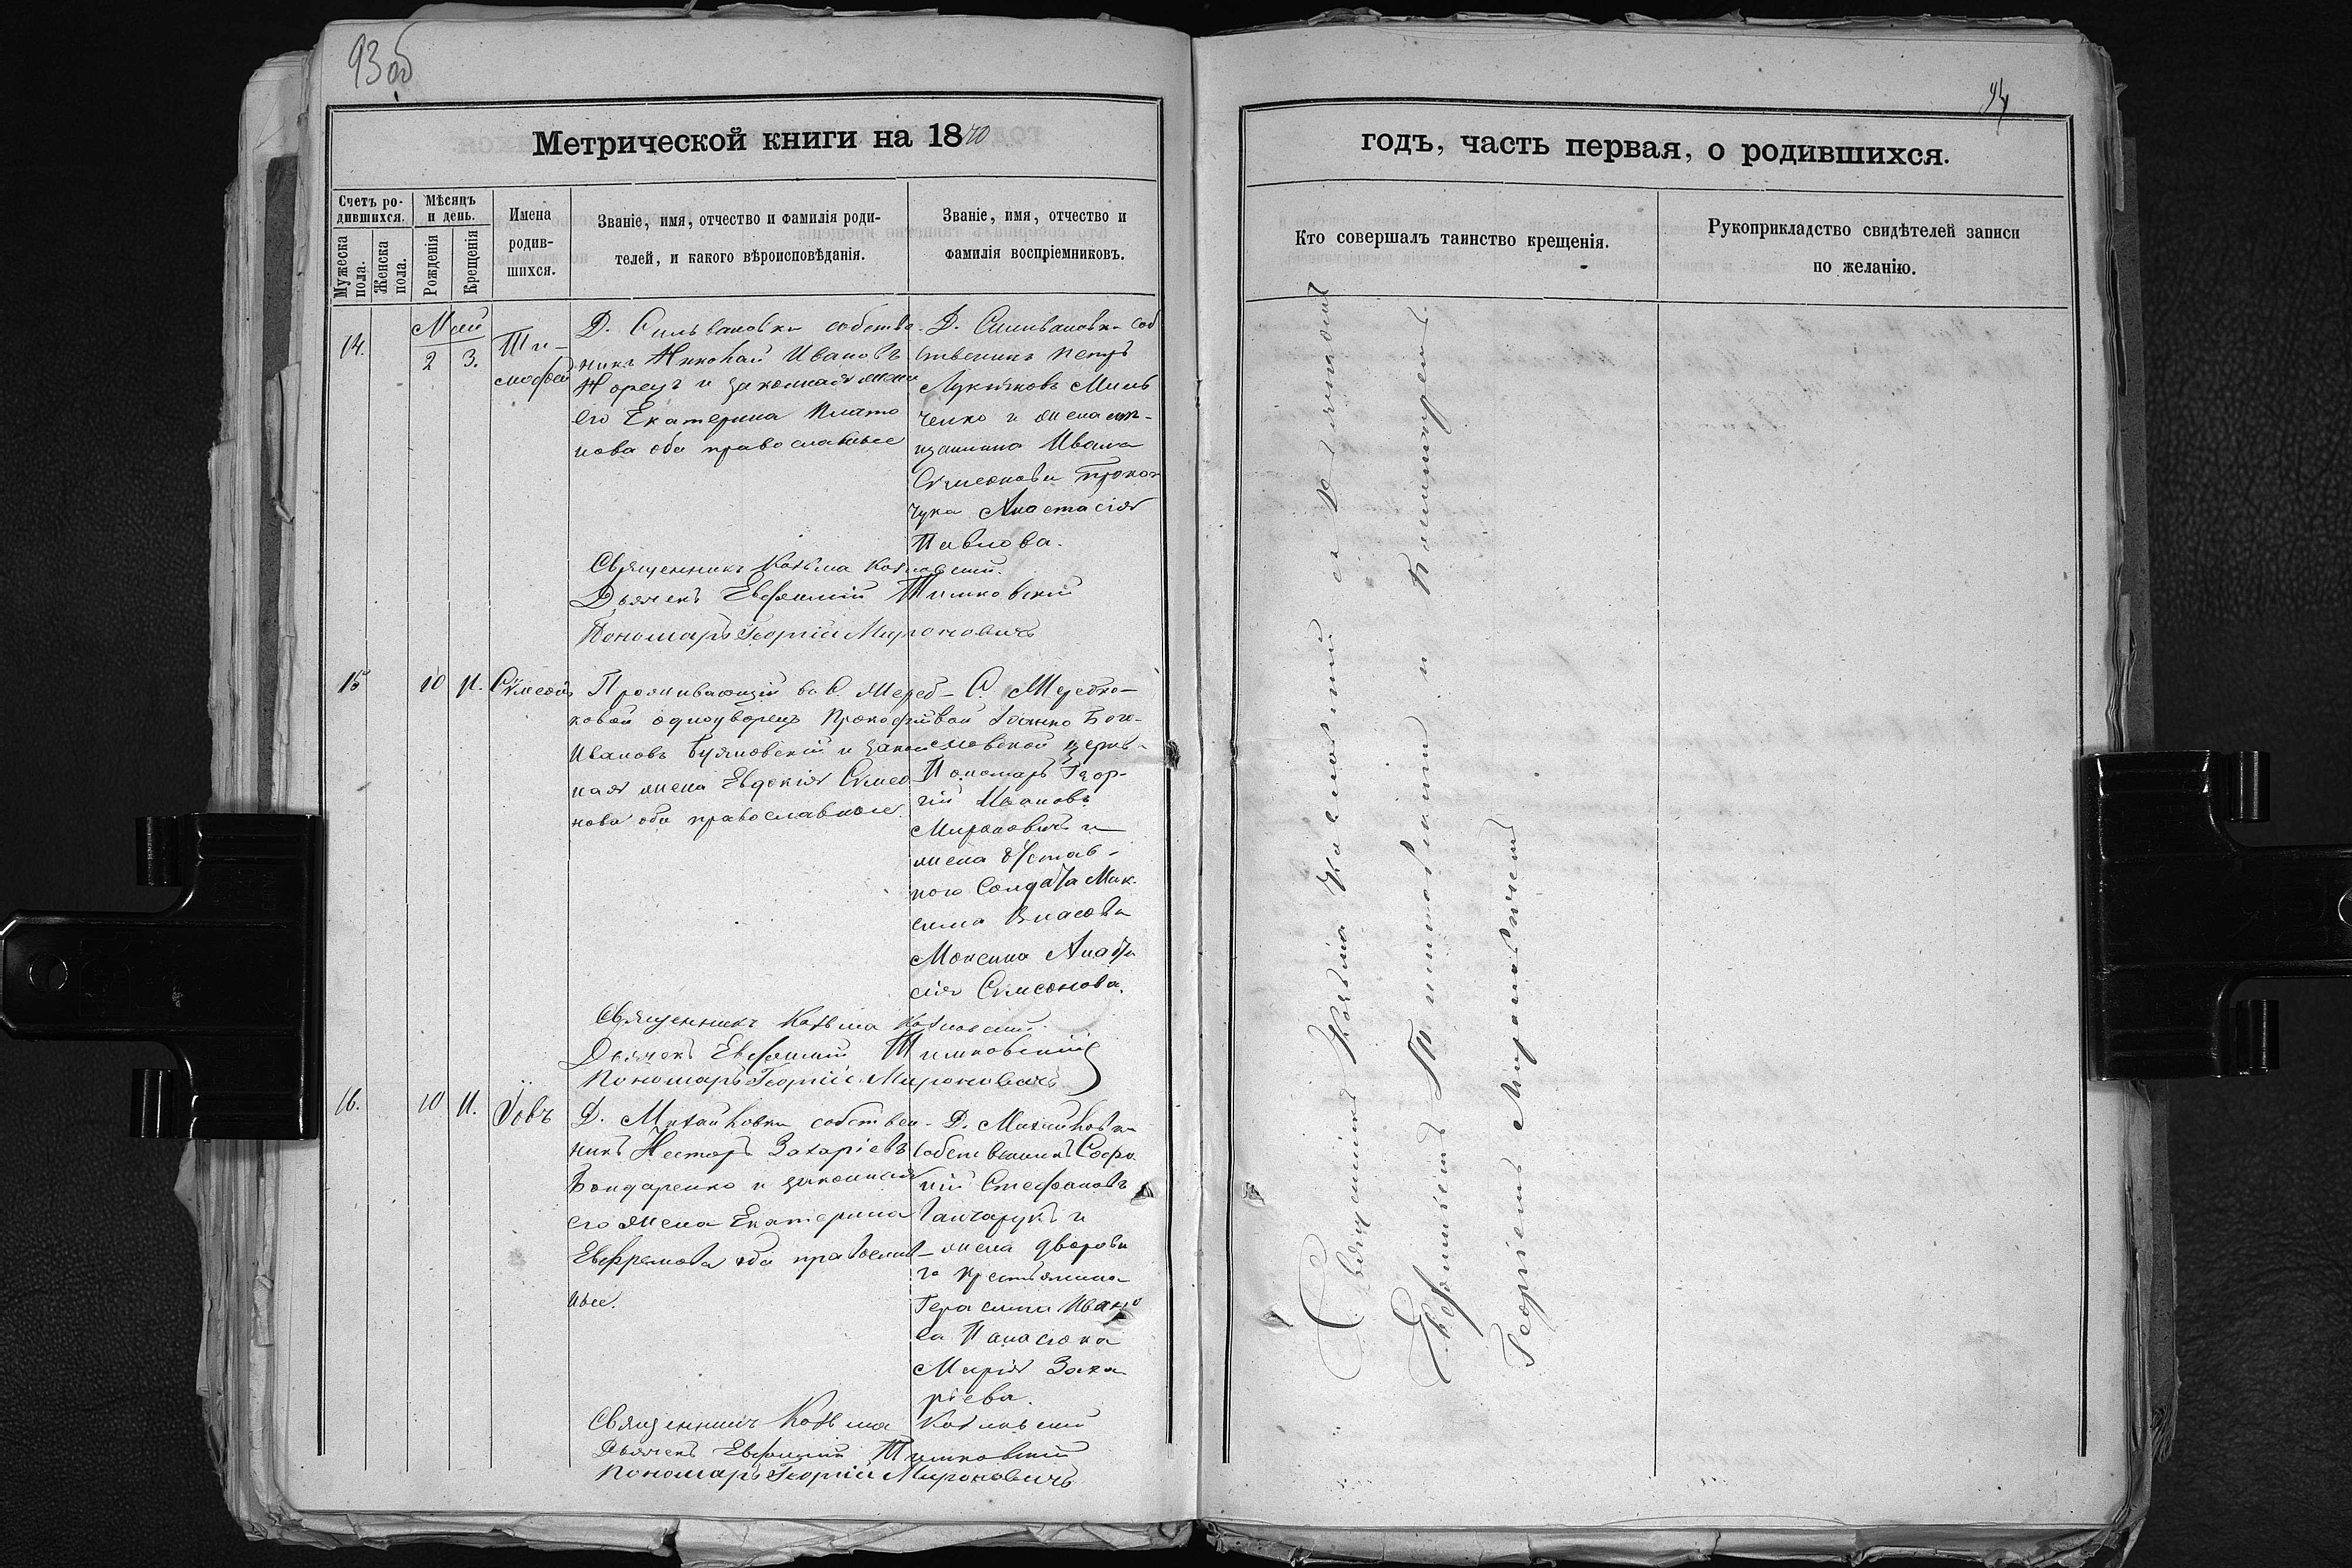 93 об
Метрической книги на 1870
Счетъ ро-
дившихся.
Мужеска
пола.
Женска
пола.
Мѣсяцъ
и день.
Рожденія
Крещенія
Имена
родив-
шихся.
Званіе, имя, отчество и фамилія роди-
телей, и какого вѣроисповѣданія.
Званіе, имя, отчество и
фамилія воспріемниковъ.
14.
Май
2
3.
Ти-
мофей
Д. Сильвановки собстве-
никъ Николай Ивановъ
и законная жена
его Екатерина Плато
нова оба православные
Д. Сильвановки соб
ственикъ Петръ
Лукияновъ Миль
ченко и жена
Ивана
Симеонова
чука Анастасія
Павлова.
Священникъ Козьма
Дьячекъ Евфимій Тимковскій
Пономарь Георгій Мироновичъ
15
10
11.
Сѵмеонъ
Проживающій въ С. Жереб-
ковой однодворецъ Прокофій
Ивановъ Буяновскій и закон
ная жена Евдокія Симео
нова оба православные.
С. Жеребко-
вой Іоанно Бого-
словской церкв-
Пономарь Геор-
гій Ивановъ
Мироновичъ и
жена Отстав-
ного Солдата Мак-
сима Власова
Моксина Анаста
сія Симеонова.
Священникъ Козьма
Дьячекъ Евфимій Тимковскій
Пономарь Георгій Мироновичъ
16.
10
11.
Іовъ
Д. Михайловки собствен-
никъ Несторъ Захаріевъ
Бондаренко и законная
его жена Екатерина
Евфремова оба православ-
ные.
Д. Михайловки
собственникъ Софро
ній Стефановъ
Ганчарукъ и
жена дворова
го крестьянина
Герасима Ивано
ва Панасюка
Марія Заха
ріева.
Священникъ Козьма
Дьячекъ Евфимій Тимковскій
Пономарь Георгій Мироновичъ
94
годъ, часть первая, о родившихся.
Кто совершалъ таинство крещенія.
Рукоприкладство свидѣтелей записи
по желанію.
Священникъ Козьма
Евфиміемъ Тимковскимъ и
Георгіемъ Мироновичемъ